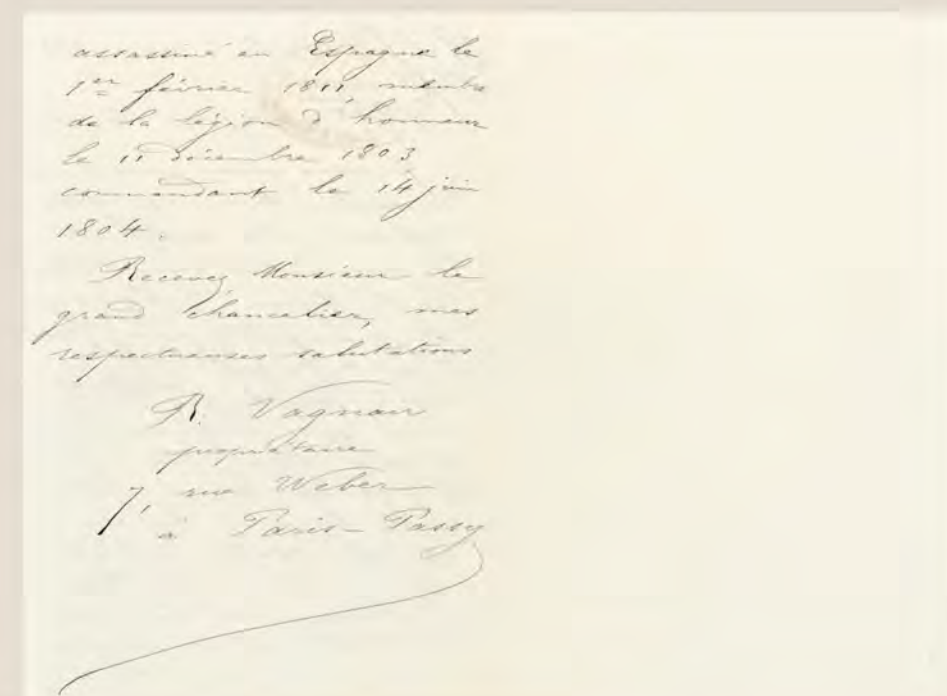 assassiné en Espagne le
1er février 1811, membre
de la légion d'honneur
le 11 décembre 1803
commandant le 14 juin
1804.
Recevez, Monsieur le
grand chancelier, mes
respectueuses salutations
R. Vagnair
propriétaire
7, rue Weber
à Paris-Passy